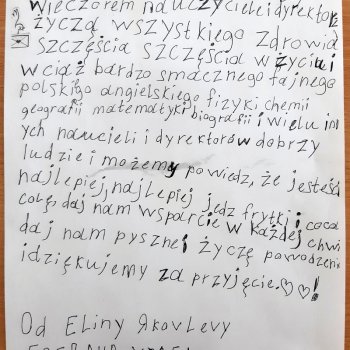 Wieczorem nauczyciele i dyrektor
życzą wszystkiego zdrowia
szczęścia szczęścia w życiu i
wciąż bardzo smacznego fajnego
polskigo angielskiego fizyki chemii
geografii matematyki biografii i wielu inn
ych naucieli i dyrektorów dobrzy
ludzie i możemy powiedz, że jesteśc
najlepiej, najlepiej jedz frytki i coca
colę, daj nam wsparcie w każdej chwi
daj nam pysznei życzę powodzenia
i dziękujemy za przyjęcie.♡♡!
Od Eliny Яkovlevy